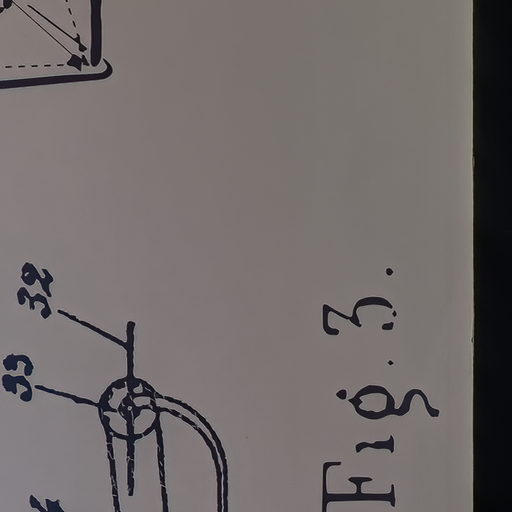 32
33
Fig. 3.